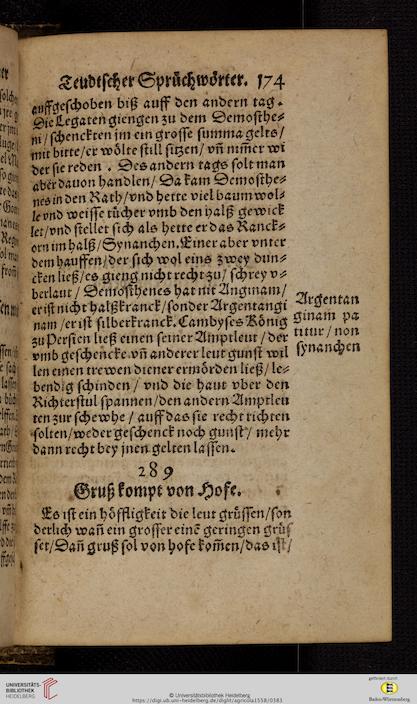 Teudtscher Sprüchwörter. 174
auffgeschoben biß auff den andern tag.
Die Legaten giengen zu dem Demosthe⸗
ni / schenckten jm ein grosse summa gelts /
mit bitte / er wölte still sitzen / vn̄ nim̄er wi
der sie reden. Des andern tags solt man
aber dauon handlen / Da kam Demosthe⸗
nes in den Rath / vnd hette viel baumwol⸗
le vnd weisse tücher vmb den halß gewick
let / vnd stellet sich als hette er das Ranck⸗
orn im halß / Synanchen. Einer aber vnter
dem hauffen / der sich wol eins zwey dun⸗
cken ließ / es gieng nicht recht zu / schrey v⸗
berlaut / Demosthenes hat nit Anginam /
er ist nicht halßkranck / sonder Argentangi
nam / er ist silberkranck. Cambyses König
zu Persien ließ einen seiner Amptleut / der
vmb geschencke vn̄ anderer leut gunst wil
len einen trewen diener ermörden ließ / le⸗
bendig schinden / vnd die haut vber den
Richterstul spannen / den andern Amptleu
ten zur schewhe / auff das sie recht richten
solten / weder geschenck noch gunst / mehr
dann recht bey jnen gelten lassen.
Argentan
ginam pa
titur / non
synanchen
289
Gruß kompt von Hofe.
Es ist ein höffligkeit die leut grüssen / son
derlich wan̄ ein grosser einē geringen grüs
set / Dan̄ gruß sol von hofe kom̄en / das ist /
UNIVERSITÄTS-
BIBLIOTHEK
HEIDELBERG
© Universitätsbibliothek Heidelberg
https://digi.ub.uni-heidelberg.de/diglit/agricola1558/0383
gefördert durch
Baden-Württemberg